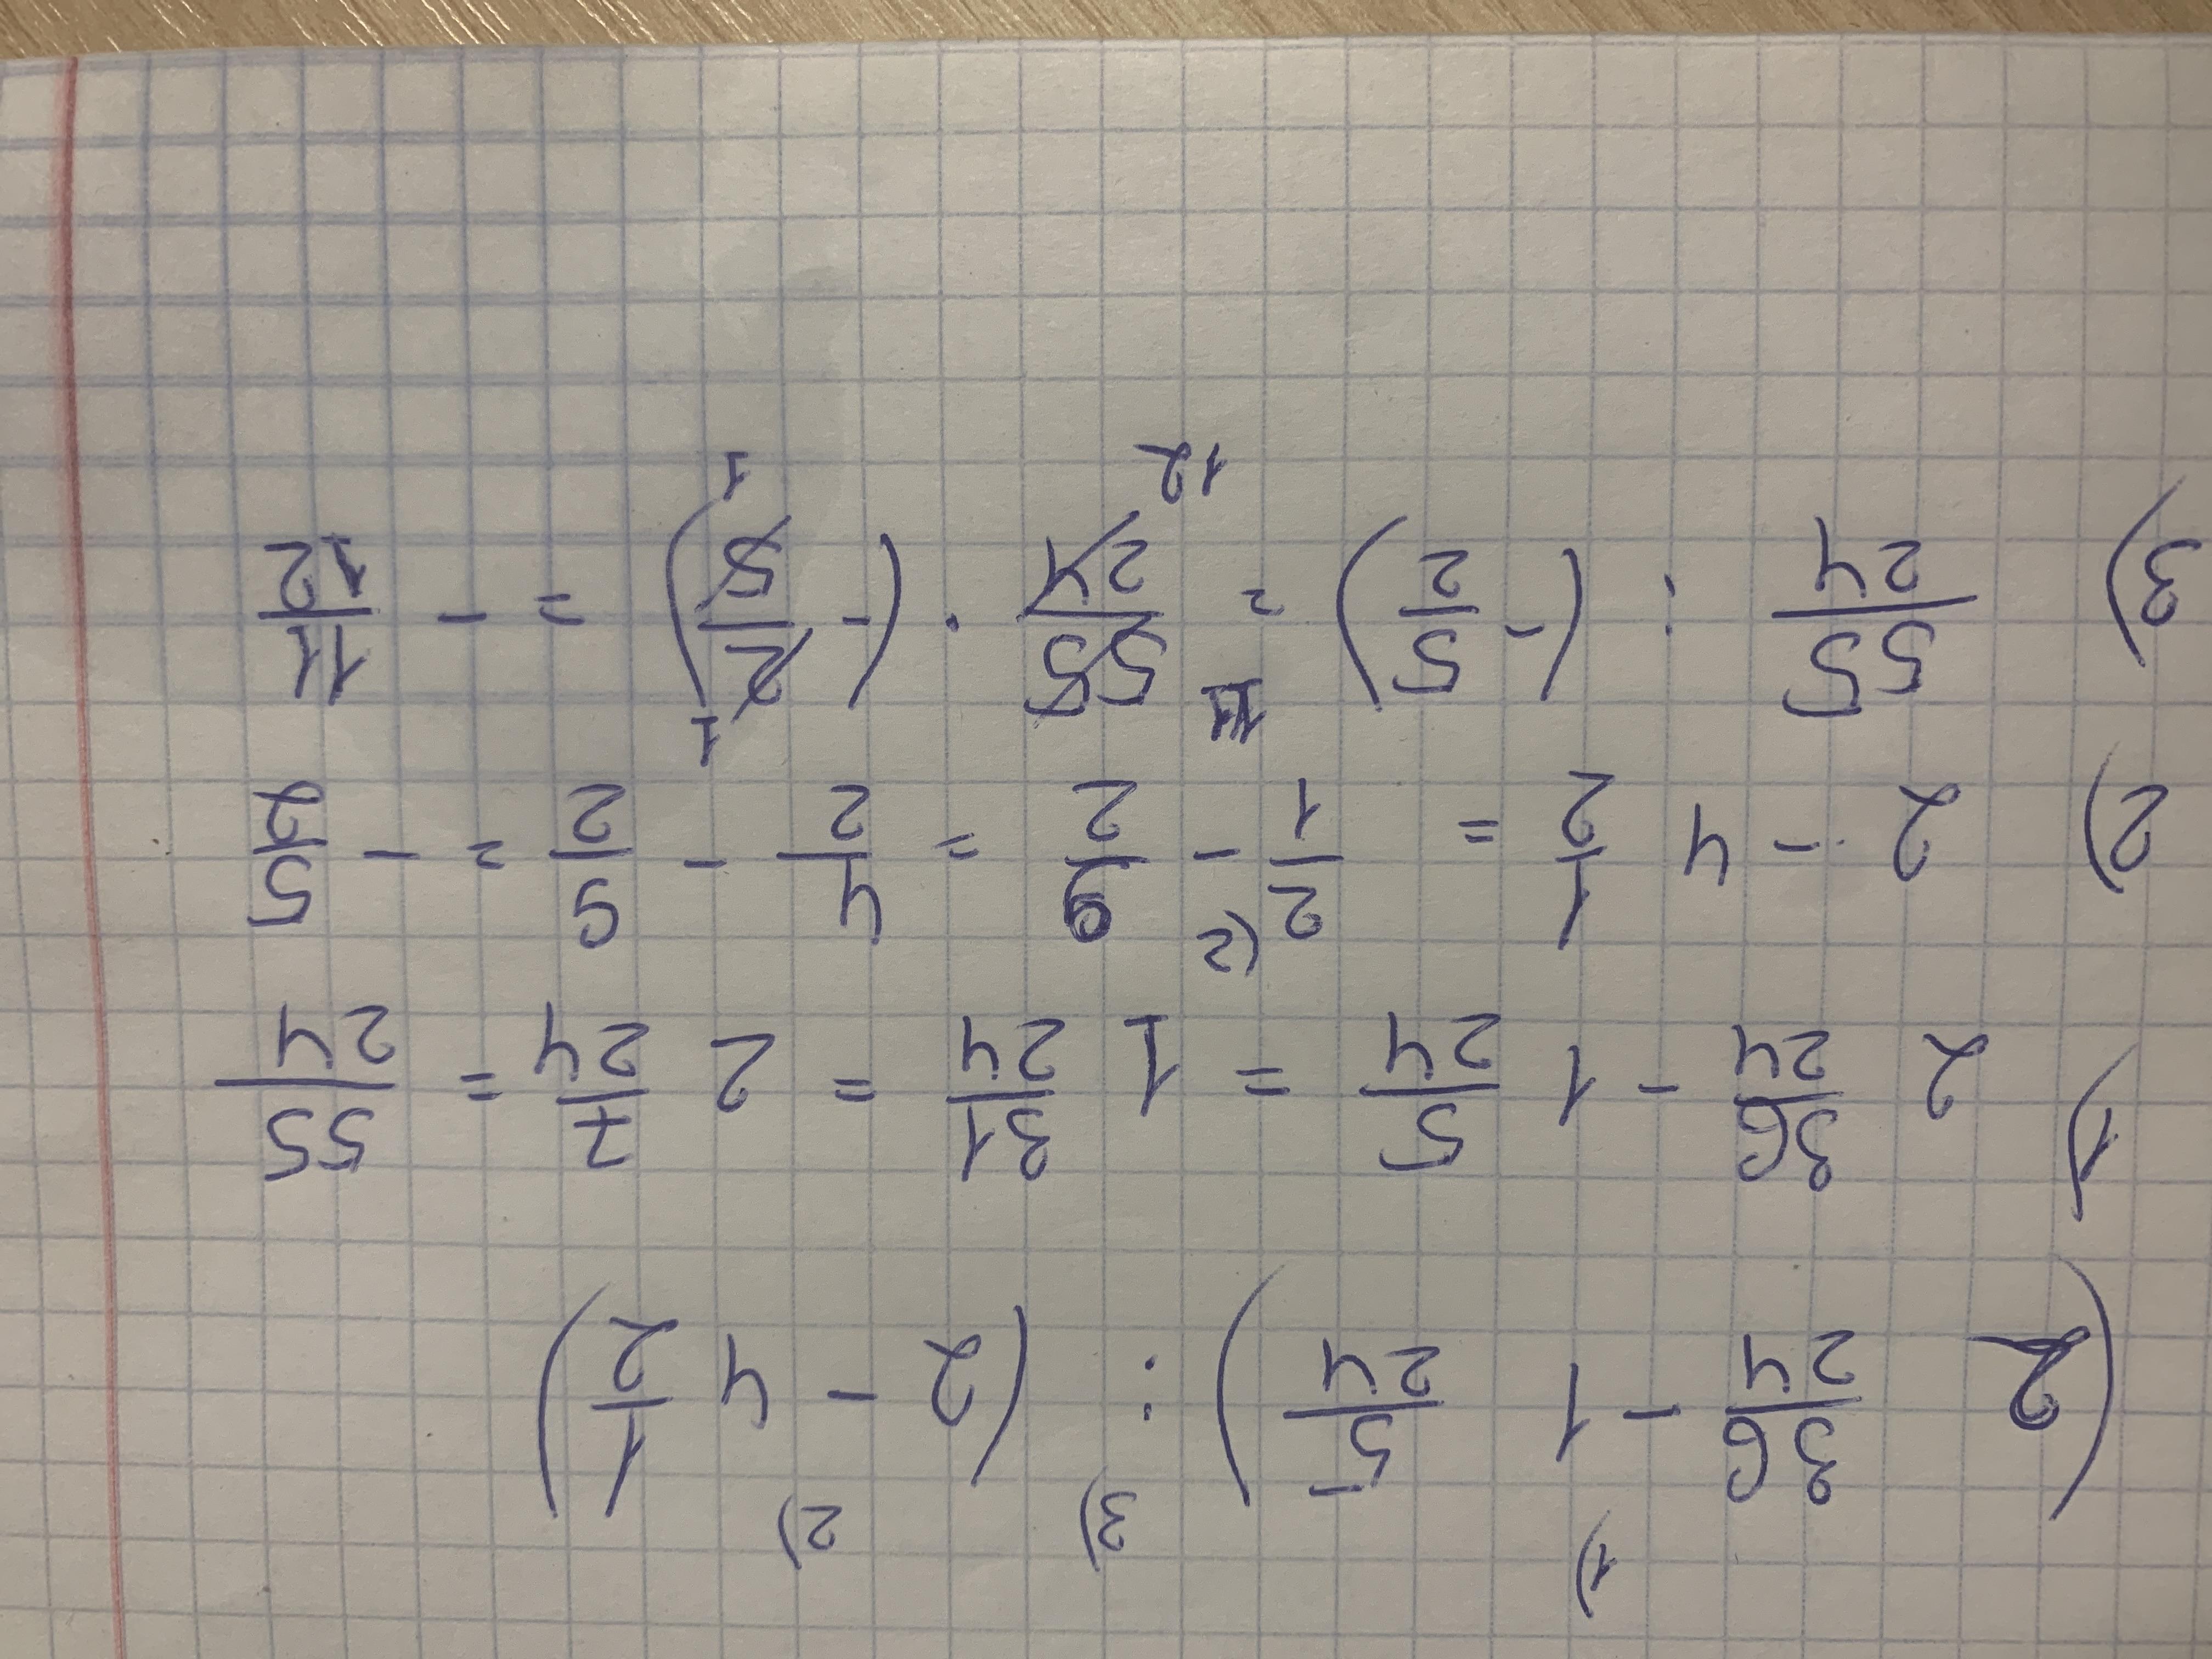 1) 3) 2)
(2 36/24 - 1 5/24) : (2 - 4 1/2)
1) 2 36/24 - 1 5/24 = 1 31/24 = 2 7/24 = 55/24
2) 2 - 4 1/2 = 2/1 (2 - 9/2 = 4/2 - 9/2 = - 5/2
3) 55/24 : (- 5/2) = 55/24 · (- 2/5) = - 11/12
11 1
12 1